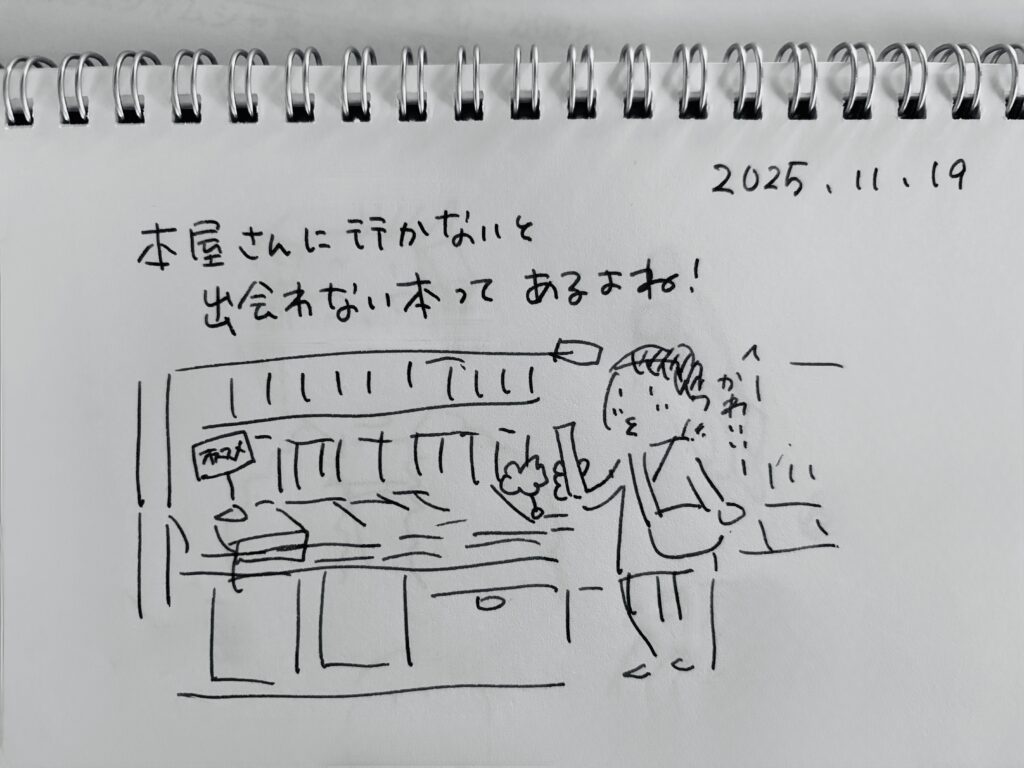 2025.11.19
本屋さんに行かないと
出会わない本ってあるよね！
オススメ
へー
かわいいー